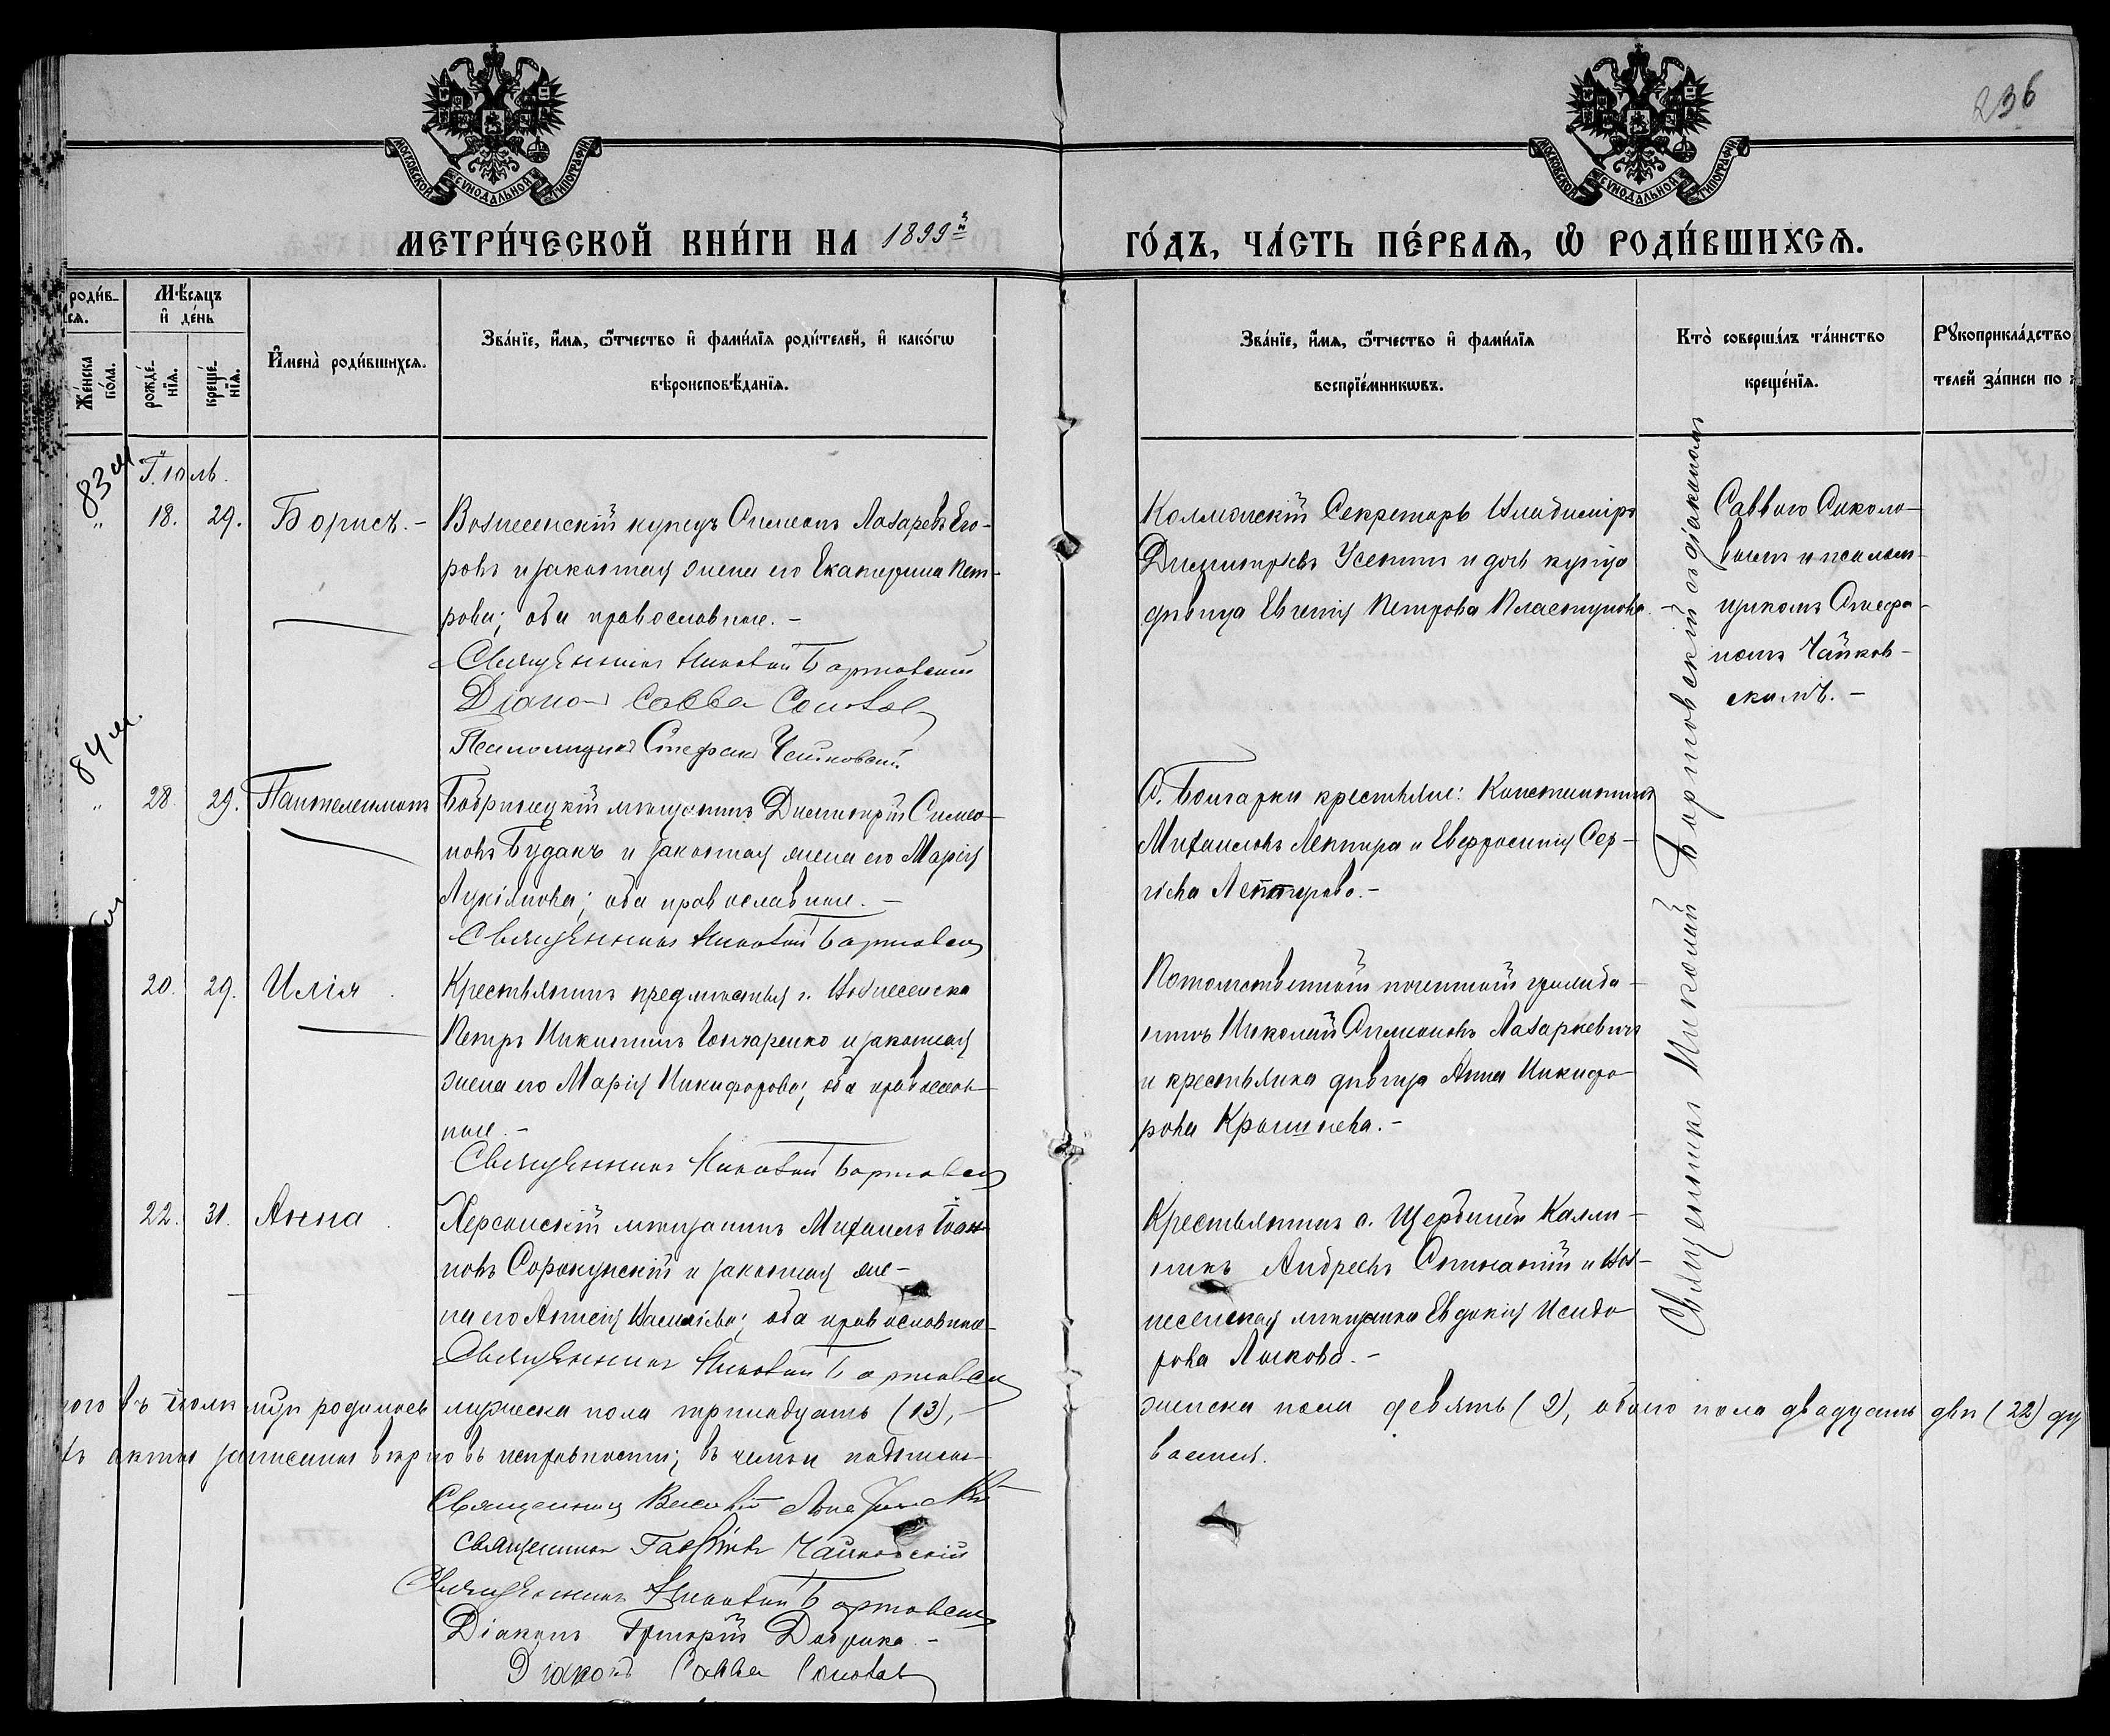 236
МОСКОВСКОЙ СУНОДАЛЬНОЙ ТИПОГРАФІИ
МОСКОВСКОЙ СУНОДАЛЬНОЙ ТИПОГРАФІИ
МЕТРИ́ЧЕСКОЙ КНИ́ГИ НА 1899й
ГО́ДЪ, ЧА́СТЬ ПЕ́РВАѦ, Ѡ҆ РОДИ́ВШИХСѦ.
роди́в-
сѧ.
Же́нска по́ла.
Мѣ́сѧцъ и҆ де́нь
рожде́нїѧ.
креще́нїѧ.
И҆мена̀ роди́вшихсѧ.
Зва́нїе, и҆́мѧ, ѻ҆́тчество и҆ фами́лїѧ роди́телей, и҆ како́гѡ
вѣроисповѣ́данїѧ.
Зва́нїе, и҆́мѧ, ѻ҆́тчество и҆ фами́лїѧ
воспрїе́мникѡвъ.
Кто̀ соверши́лъ та́инство
креще́нїѧ.
Рꙋкоприкла́дство
телей за́писи по
83 м
Іюль.
" 18. 29. Борисъ.-
Вознесенскій купецъ Симеонъ Лазаревъ Его-
ровъ и законная жена его Екатерина Пет-
рова; оба православные.-
Священникъ Николай Бортовскій
Діаконъ Савва Соколов
Псаломщикъ Стефанъ Чайковскій
Коллежскій Секретарь Владиміръ
Димитріевъ Усенин и дочь купца
дѣвица Евгенія Петрова Пластунова.-
Священникъ Николай Бортовскій съ діакономъ
Саввою Соколо-
вымъ и псалом-
щикомъ Стефа-
номъ Чайков-
скимъ.-
84 м
" 28. 29. Пантелеимонъ
Бобринецкій мѣщанинъ Димитрій Симео-
новъ Будакъ и законная жена его Марія
Лукіянова; оба православные.-
Священникъ Николай Бортовскій
С. Болгарки крестьяне: Константинъ
Михаиловъ Лептура и Евфросинія Сер-
гіева Лептурова.-
20. 29. Илія
Крестьянинъ предмѣстья г. Вознесенска
Петръ Никитинъ Гончаренко и законная
жена его Марія Никифорова; оба православ-
ные.-
Священникъ Николай Бортовскій
Потомственный почетный гражда-
нинъ Николай Симеоновъ Лазаркевичъ
и крестьянка дѣвица Анна Никифо-
рова Крышнева.-
22. 31. Анна
Херсонскій мѣщанинъ Михаилъ Іоан-
новъ Сорокунскій и законная же-
на его Анисія Василіева; оба православные-
Священникъ Николай Бортовскій
Крестьянинъ с. Щербиной Калли-
никъ Андреевъ и Воз-
несенская мѣщанка Евдокія Исидо-
рова Лыскова.-
ого въ іюлѣ м-цѣ родилось мужеска пола тринадцать (13), женска пола девять (9), обоего пола двадцать два (22) ду
акты записаны вѣрно въ исправности; въ чемъ и подписы-
ваемся.
Священникъ Василій
Священникъ Гавріилъ Чайковскій
Священникъ Николай Бортовскій
Діаконъ Григорій Доброва.-
Діаконъ Савва Соколов